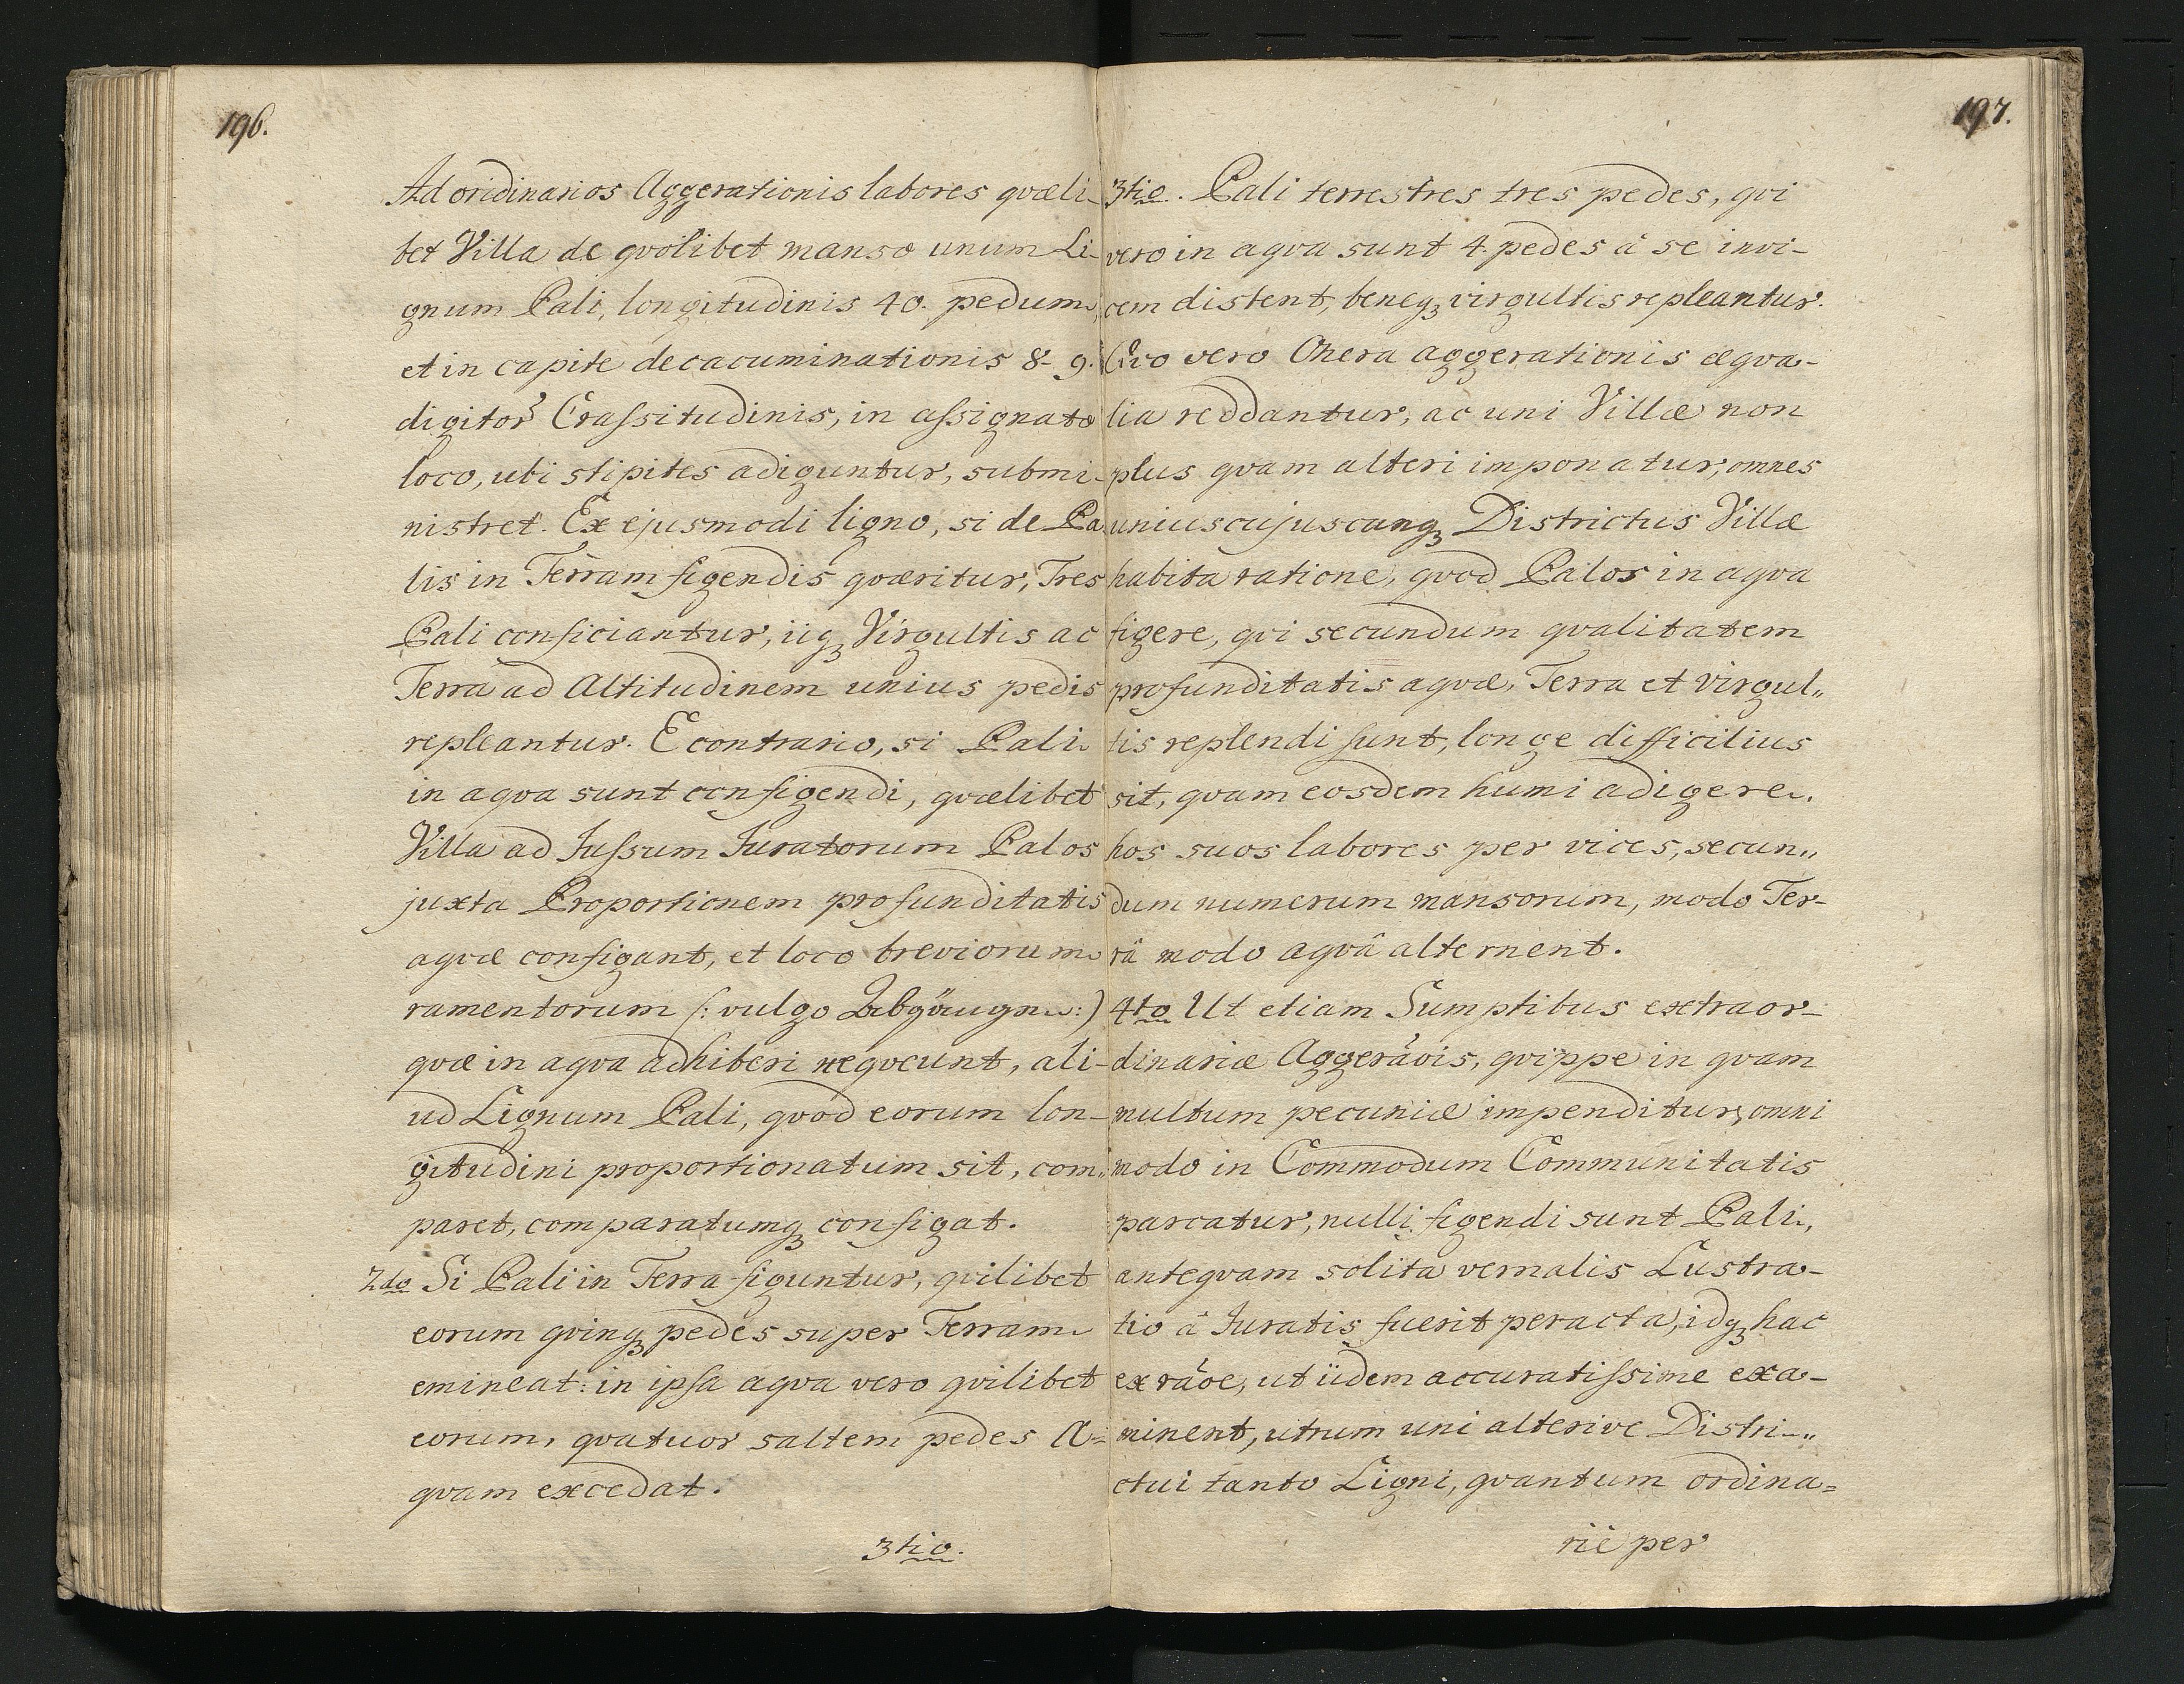 196.
Ad oridinarios Aggerationis labores qvæli-
bet Villa de qvolibet manso unum Li-
gnum Pali, longitudinis 40. pedum,
et in capite decacuminationis 8- 9.
digitor Crassitudinis, in assignato
loco, ubi stipites adiguntur, submi-
nistret. Ex ejusmodi ligno, si de Pa-
lis in Terram figendis qværitur, Tres
Pali conficiantur, iiqꝫ Virgultis ac
Terra ad Altitudinem unius pedis
repleantur. E contrario, si Pali
in aqva sunt configendi, qvælibet
Villa ad Jussum Juratorum Palos
juxta Proportionem profunditatis
aqvæ configant, et loco breviorum
ramentorum (: vulgo :)
qvæ in aqva adhiberi neqveunt, ali-
ud Lignum Pali, qvod eorum lon-
gitudini proportionatum sit, com„
paret, comparatumqꝫ configat.
2do Si Pali in Terra figuntur, qvilibet
eorum qvinqꝫ pedes super Terram
emineat: in ipsa aqva vero qvilibet
eorum, qvatuor saltem pedes A=
qvam excedat.
3tio.
197.
3tio. Pali terrestres tres pedes, qvi
vero in aqva sunt 4. pedes â se invi-
cem distent, beneqꝫ virgultis repleantur.
Qvo vero Onera aggerationis æqva-
lia reddantur, ac uni Villæ non
plus qvam alteri imponatur, omnes
uniuscujuscunqꝫ Districtus Villæ
habita ratione, qvod Palos in aqva
figere, qvi secundum qvalitatem
profunditatis aqvæ, Terra et virgul„
tis replendi sunt, longe difficilius
sit, qvam eosdem humi adigere,
hos suos labores per vices, secun„
dum numerum mansorum, modo Ter-
râ modo aqvâ alternent.
4to Ut etiam Sumptibus extraor-
dinariæ Aggerãois, qvippe in qvam
multum pecuniæ impenditur, omni
modo in Commodum Communitatis
parcatur, nulli figendi sunt Pali,
anteqvam solita vernalis Lustra-
tio â Juratis fuerit peracta, idqꝫ hac
ex rãoe, ut iidem accuratissime exa-
minent, utrum uni alterive Distri„
ctui tanto Ligni, qvantum ordina=
rie per